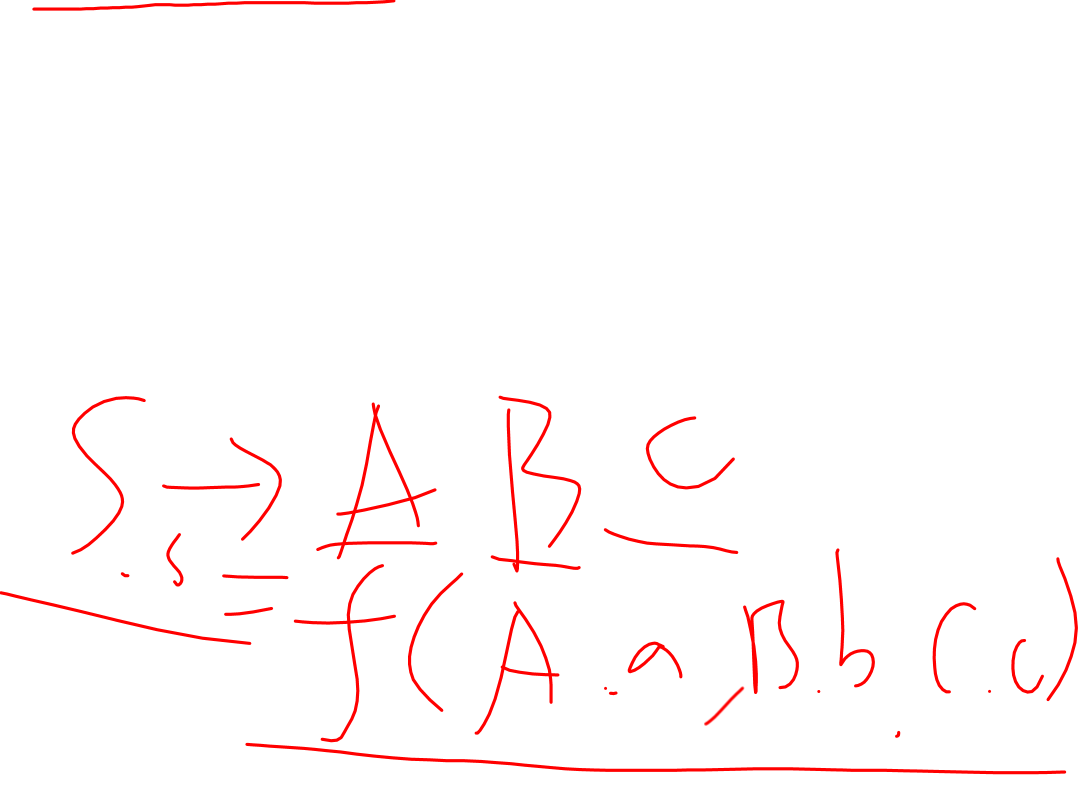 S → A B C
.s = f(A.a, B.b, C.c)